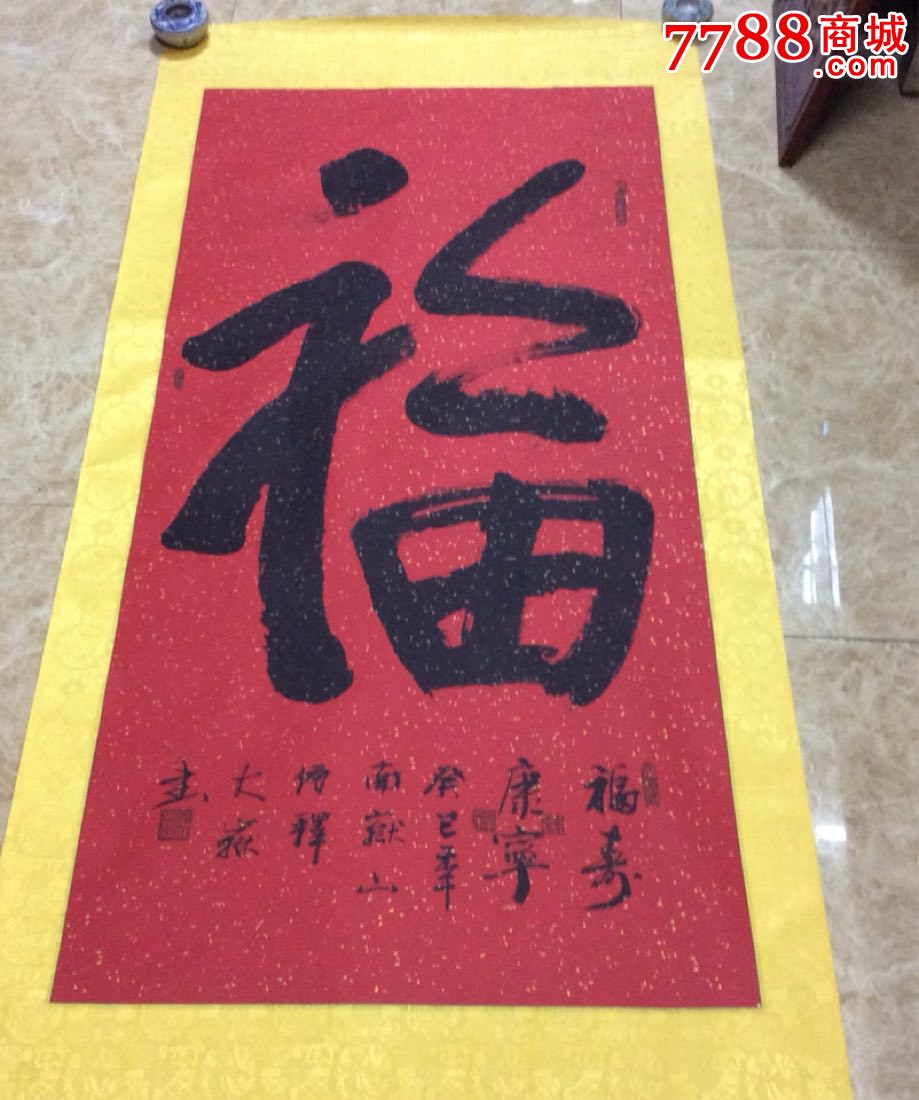 7788商城
.com
福
福寿
康寧
癸巳年
南嶽山
僧釋
大嶽
书